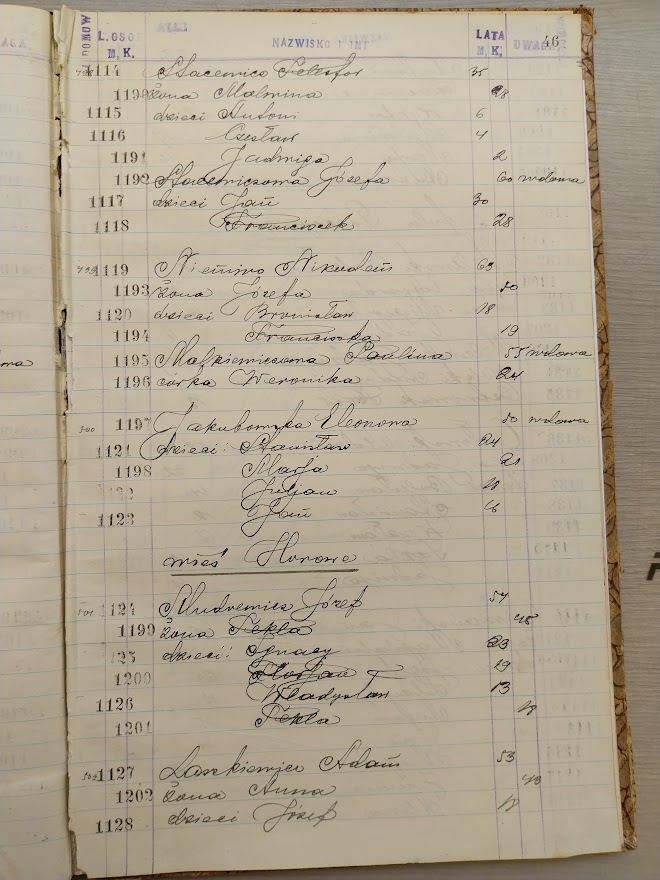 L. DOMÓW L. OSÓB M. K. NAZWISKO I IMI LATA M. K. UWAGA 46
1114 Stacewicz Telesfor 35
1190 żona Malwina 28
1115 dzieci Antoni 6
1116 Czesław 4
1191 Jadwiga 2
1192 Stacewiczowa Józefa 60 wdowa
1117 dzieci Jan 30
1118 Franciszek 28
499 1119 Nikodem 63
1193 żona Józefa 50
1120 dzieci Bronisław 18
1194 Franciszka 19
1195 Malkiewiczowa Paulina 55 wdowa
1196 córka Weronika 24
500 1197 Jakubowska Eleonora 50 wdowa
1121 dzieci: Stanisław 24
1198 Marja 21
Juljan
1123 Jan
wieś
501 1124 Józef 57
1199 żona Tekla 48
dzieci: Ignacy 23
1200 19
1126 Władysław 13
1201 Tekla
502 1127 Laszkiewicz Adam 53
1202 żona Anna 43
1128 dzieci Józef